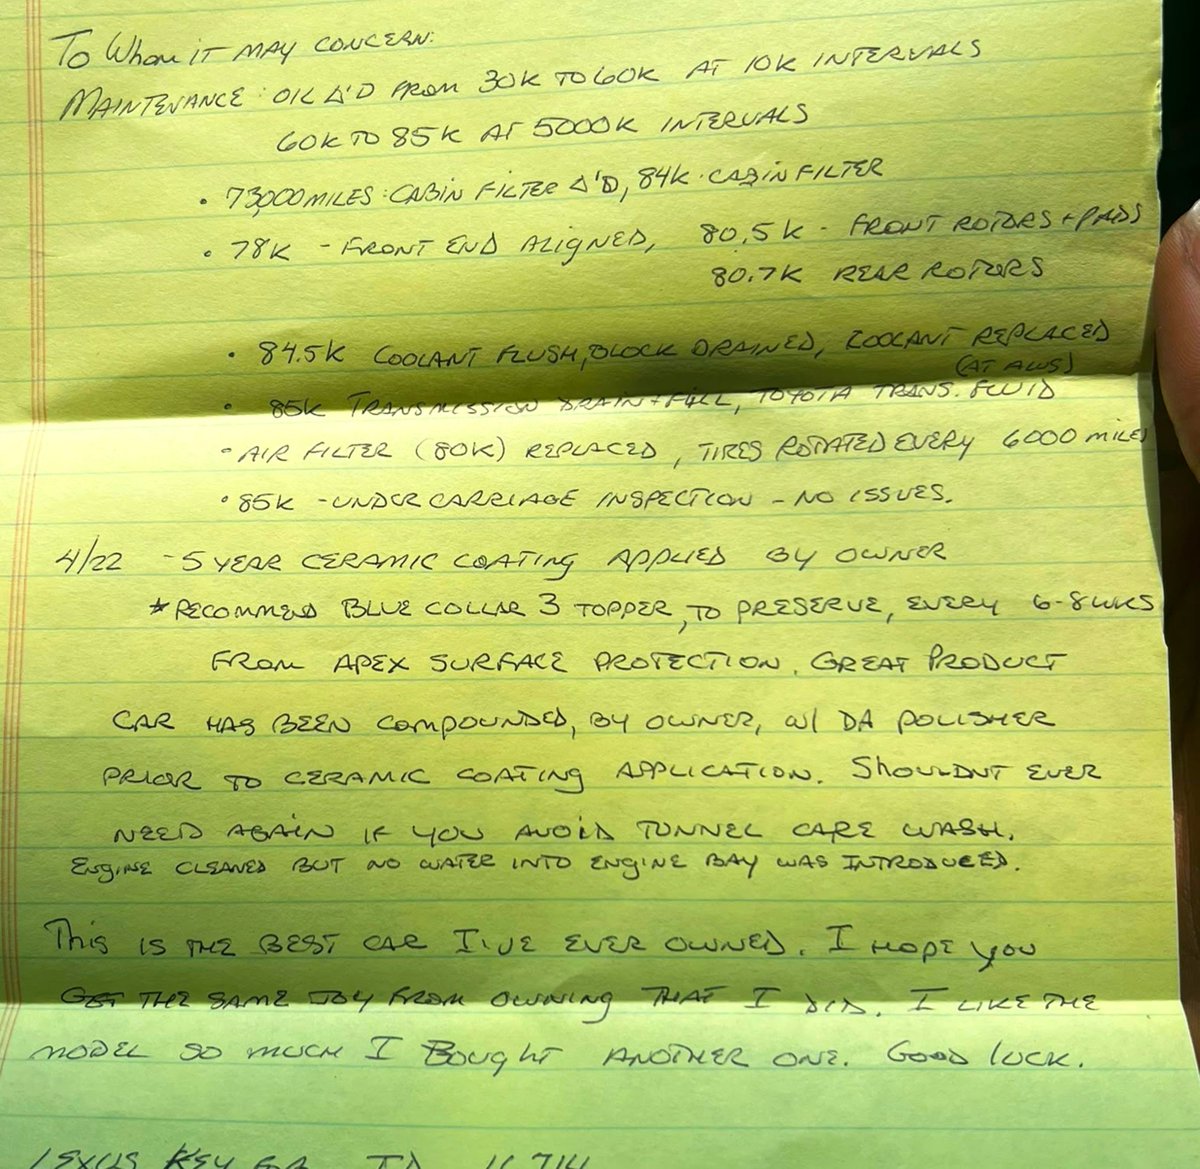 To Whom it MAY CONCERN:
MAINTENANCE: OIL Δ'D FROM 30K TO 60K AT 10K INTERVALS
60K TO 85K AT 5000K INTERVALS
• 73,000 MILES: CABIN FILTER Δ'D, 84K · CABIN FILTER
• 78K - FRONT END ALIGNED, 80.5K - FRONT ROTORS + PADS
80.7K REAR ROTORS
• 84.5K COOLANT FLUSH, BLOCK DRAINED, COOLANT REPLACED
(AT AWS)
• 85K TRANSMISSION DRAIN + FILL, TOYOTA TRANS. FLUID
• AIR FILTER (80K) REPLACED, TIRES ROTATED EVERY 6000 MILES
• 85K - UNDERCARRIAGE INSPECTION - NO ISSUES.
4/22 - 5 YEAR CERAMIC COATING APPLIED BY OWNER
* RECOMMEND BLUE COLLAR 3 TOPPER, TO PRESERVE, EVERY 6-8 WKS
FROM APEX SURFACE PROTECTION. GREAT PRODUCT
CAR HAS BEEN COMPOUNDED, BY OWNER, W/ DA POLISHER
PRIOR TO CERAMIC COATING APPLICATION. SHOULDNT EVER
NEED AGAIN IF YOU AVOID TUNNEL CARE WASH.
ENGINE CLEANED BUT NO WATER INTO ENGINE BAY WAS INTRODUCED.
This IS THE BEST CAR I'VE EVER OWNED. I HOPE YOU
GET THE SAME JOY FROM OWNING THAT I DID. I LIKE THE
MODEL SO MUCH I BOUGHT ANOTHER ONE. GOOD LUCK.
LEXUS KEY FOB